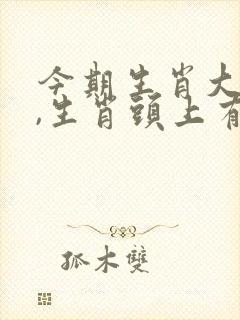 今期生肖大
,生肖頭上有
孤木雙